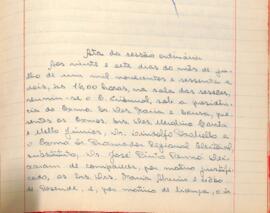 Ata da sessão ordinária
Aos vinte e sete dias do mês de ju-
lho de um mil novecentos e sessenta e
dois, às 16,00 horas, na sala das sessões,
reuniu-se o E. Tribunal, sob a presidên-
cia do Exmo. Sr. Des. Faria e Sousa, pre-
sentes os Exmos. Srs. Des. Merolino Corrêa
e Mello Júnior, Dr. Dr.
o Exmo. Sr. Procurador Regional Eleitoral,
substituto, Dr. José Pinto Deixa-
ram de comparecer, por motivo justifi-
cado, os Srs. Des. e
de Resende, e, por motivo de licença, o Dr.